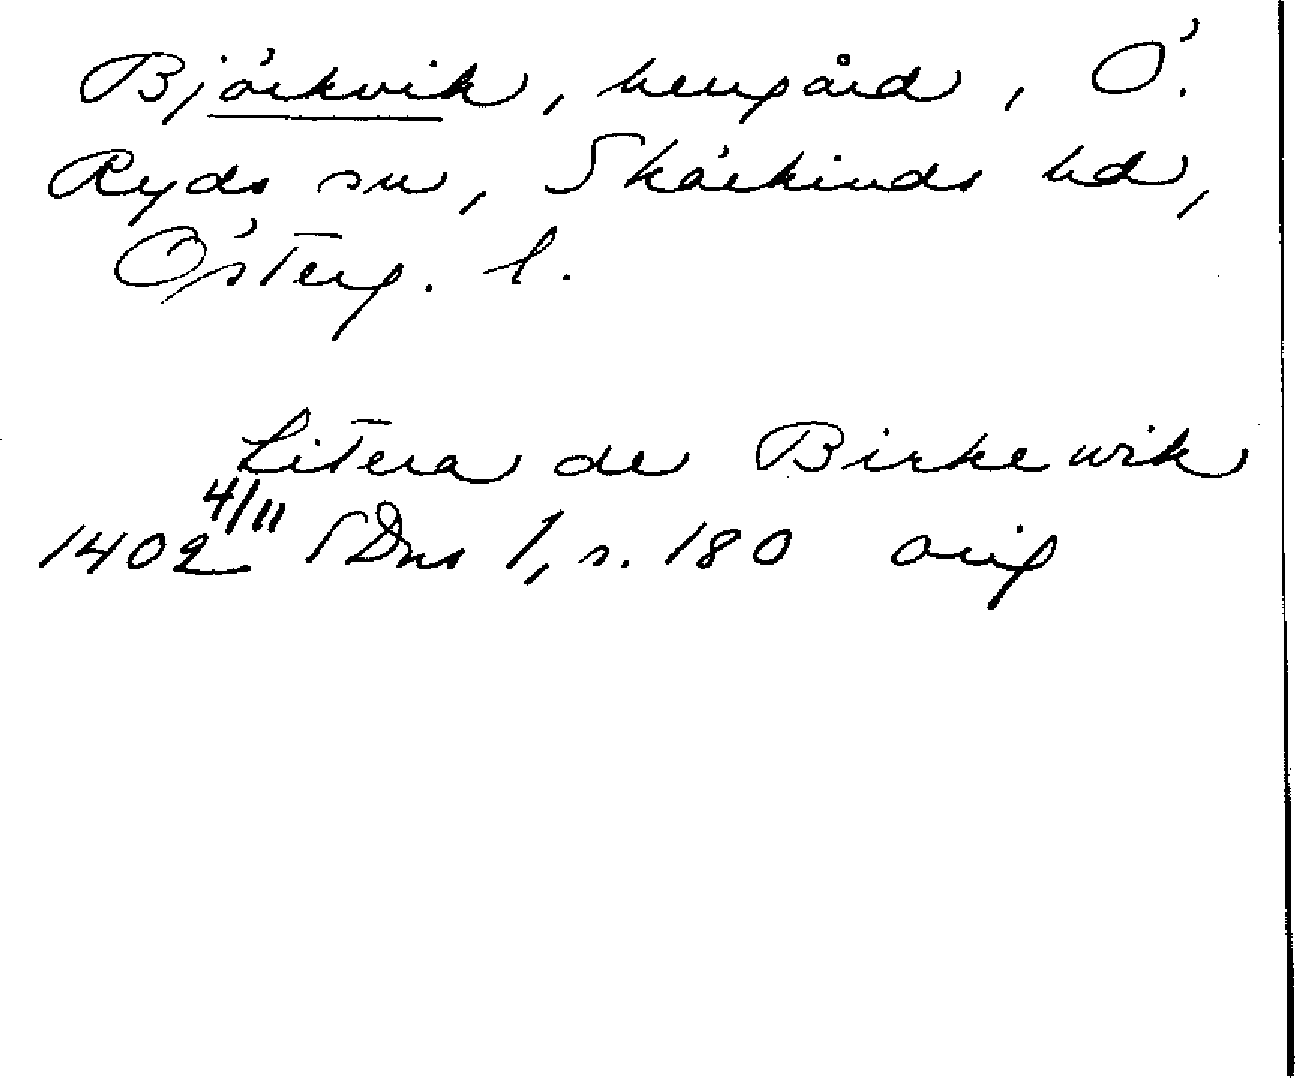 Björkvik, herrgård, Ö.
Ryds sn, Skärkinds hd,
Österg. l.
Litera de Birkewik
1402 4/11 SDns 1, s. 180 orig